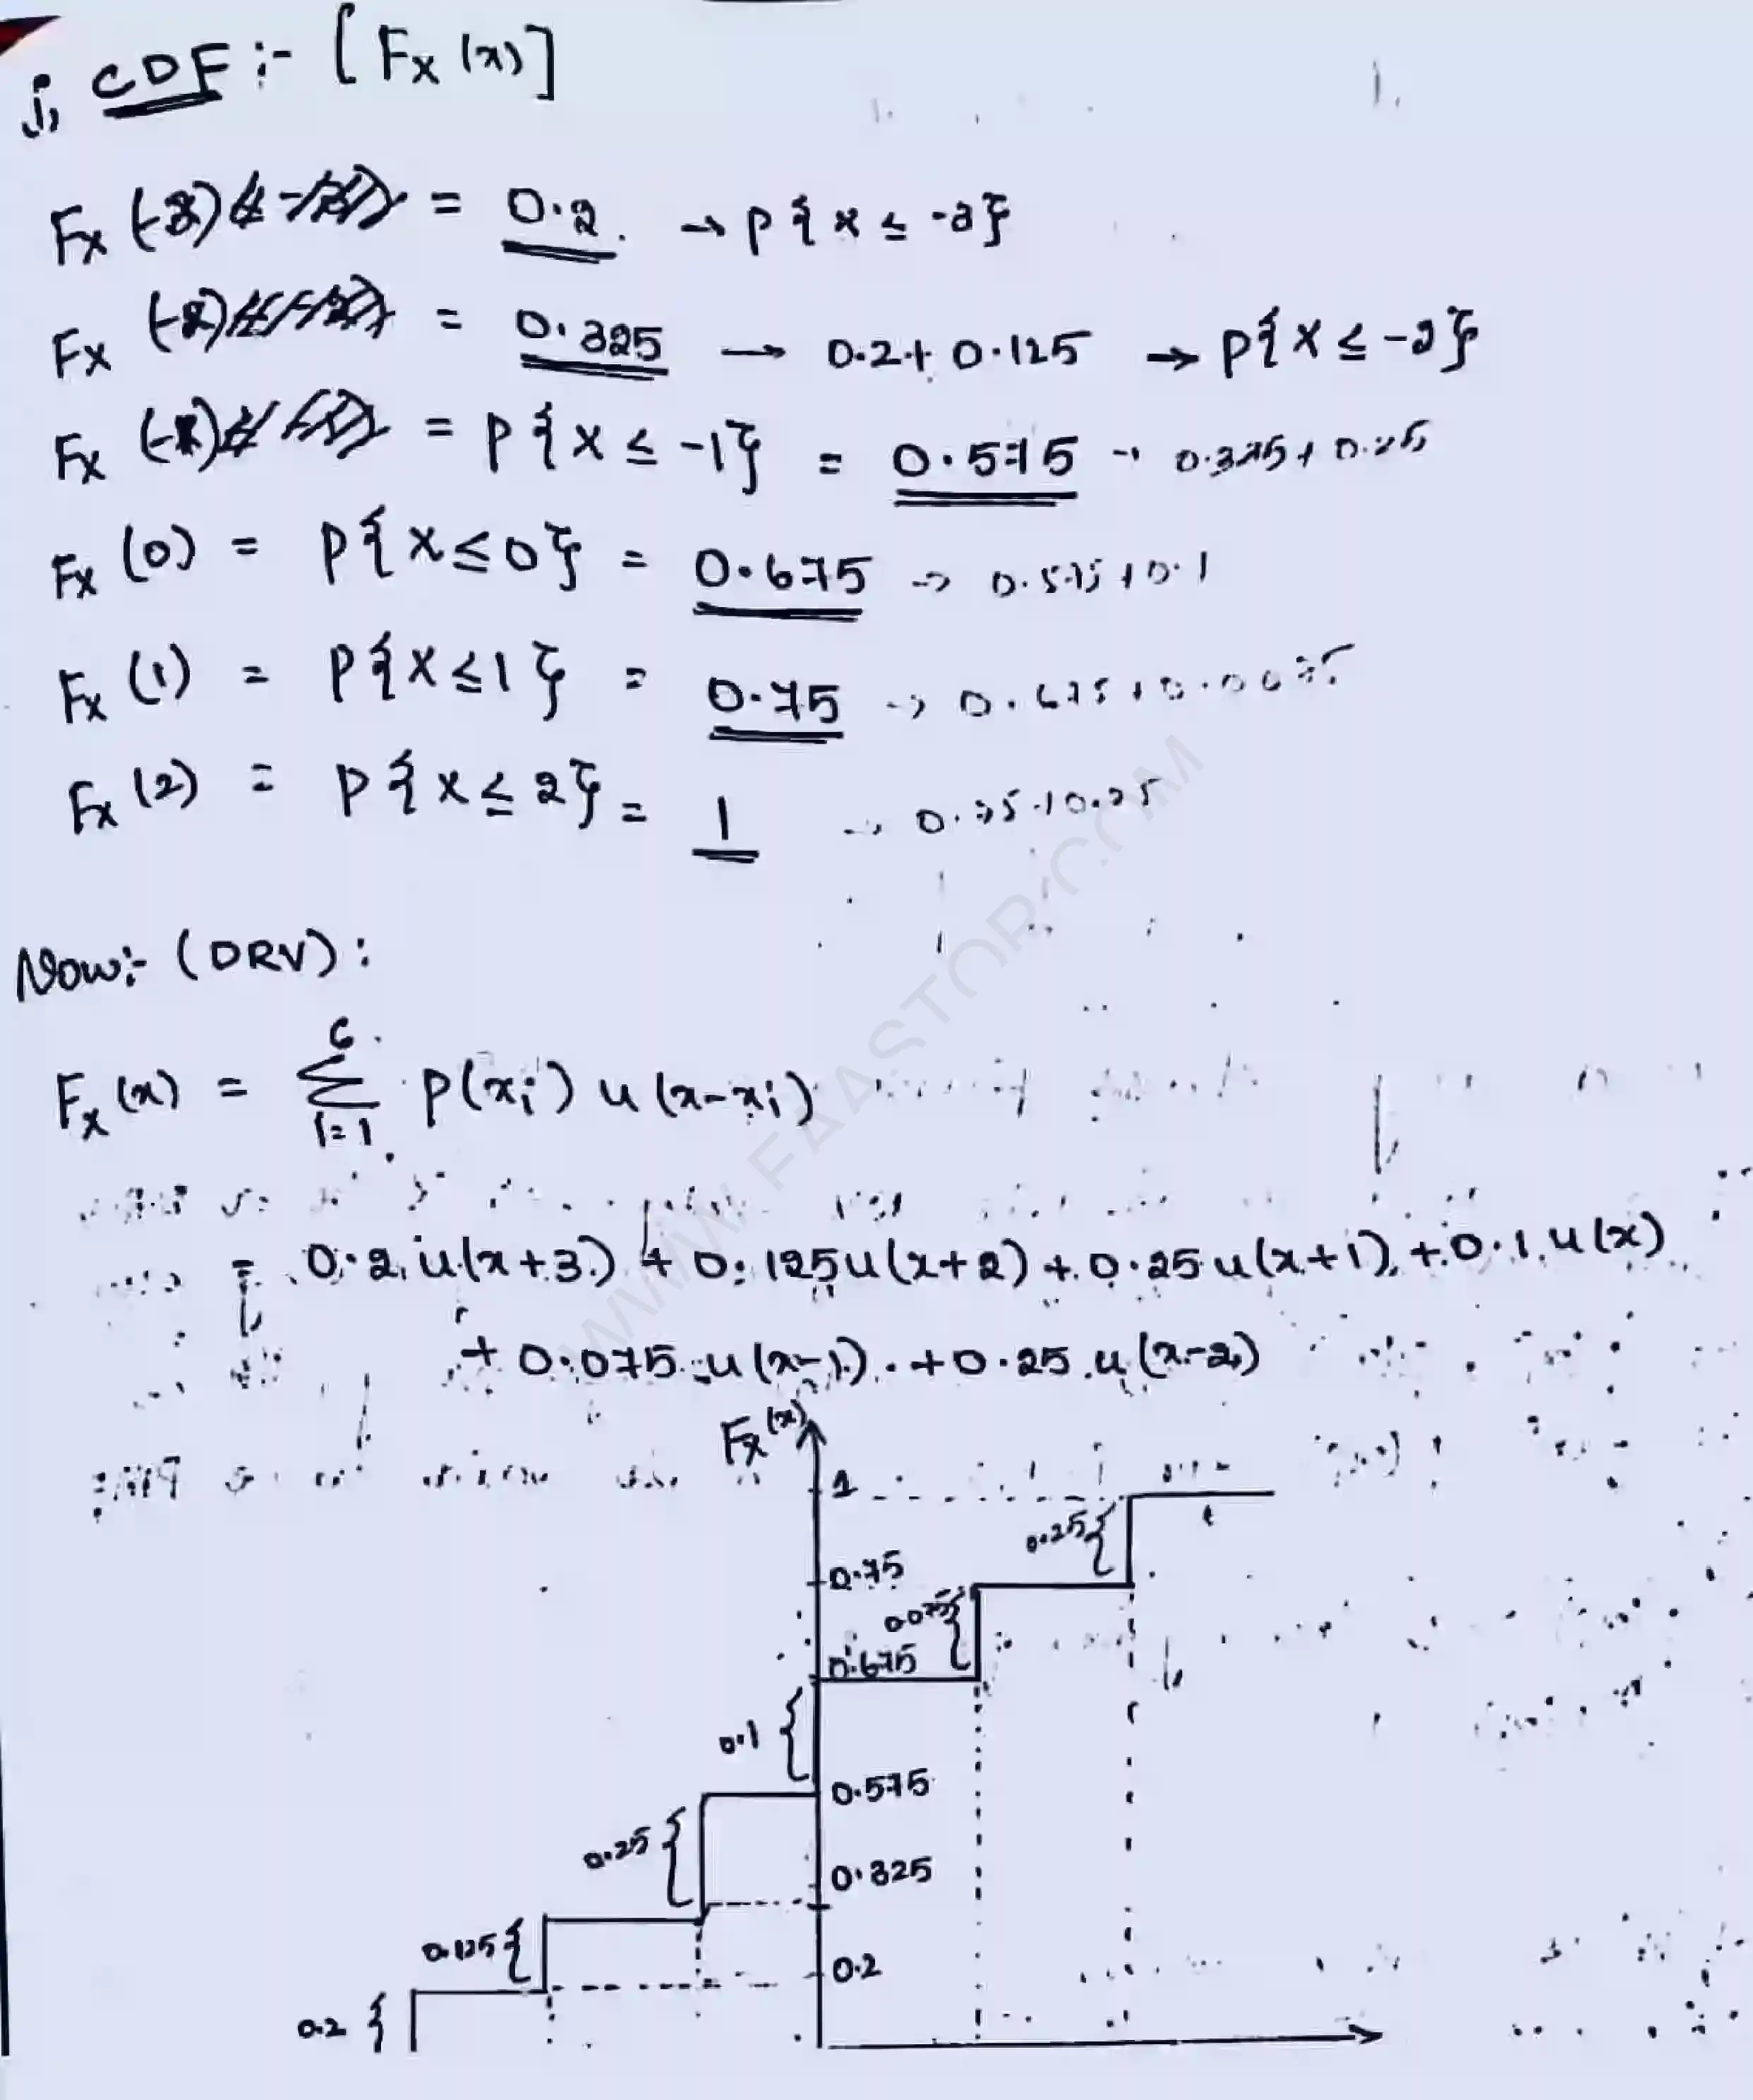 i, CDF :- [Fx (x)]
Fx (-3) = 0.2 . → P{x ≤ -3}
Fx (-2) = 0.325 → 0.2 + 0.125 → P{X ≤ -2}
Fx (-1) = P{X ≤ -1} = 0.575 → 0.325 + 0.25
Fx (0) = P{X ≤ 0} = 0.675 → 0.575 + 0.1
Fx (1) = P{X ≤ 1} = 0.75 → 0.675 +
Fx (2) = P{X ≤ 2} = 1 → 0.75 + 0.25
Now:- (DRV) :
Fx (x) = 6 Σ i=1 P(xi) u (x-xi)
= 0.2 u(x+3) + 0.125 u(x+2) + 0.25 u(x+1) + 0.1 u(x)
+ 0.075 u(x-1) + 0.25 u(x-2)
Fx(x)
1
0.25
0.75
0.075
0.675
0.1
0.575
0.25
0.325
0.125
0.2
0.2
WWW.FAASTOP.COM